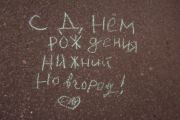 С Днём
рождения
Нижний
Новгород!